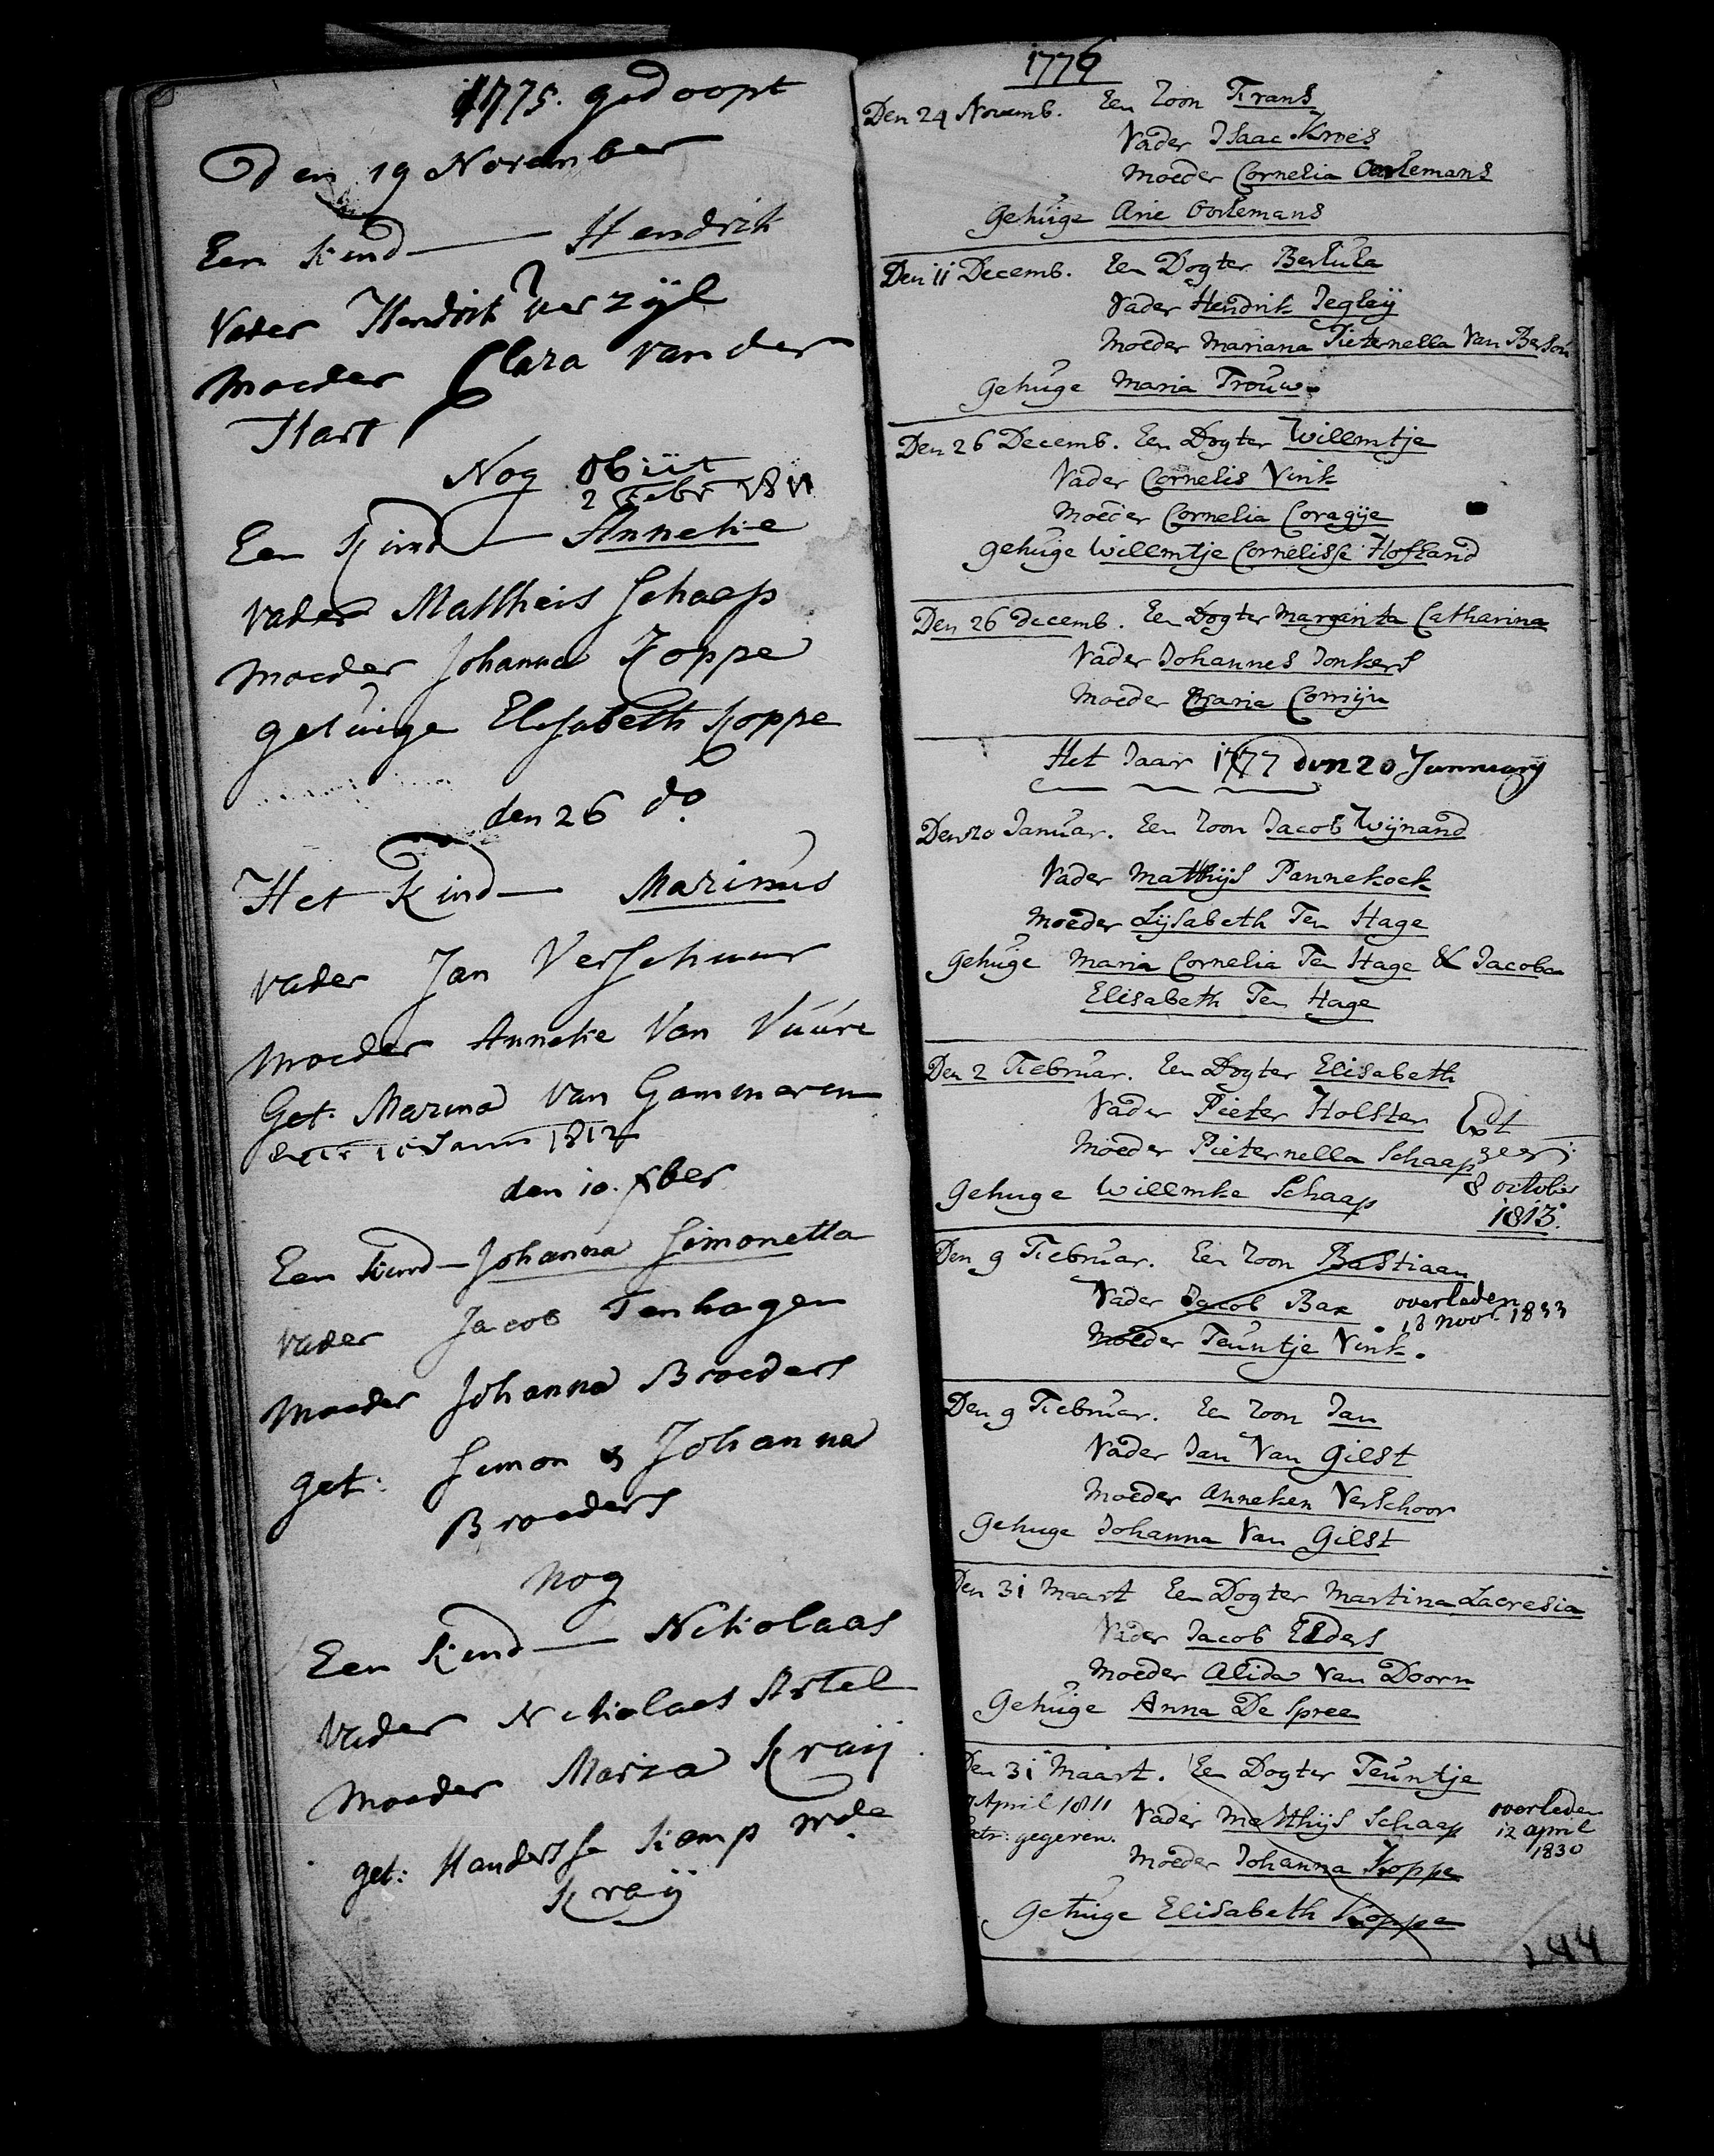 1775. gedoopt
Den 19 November
Een Kind — Hendrik
Vader Hendrik Verzijl
Moeder Clara van der
Hart
Nog obiit
2 Febr 1811
Een Kind — Anneke
Vader Mattheis Schaap
Moeder Johanna Koppe
getuige Elisabeth Koppe
den 26 do.
Het Kind — Marinus
Vader Jan Verschuur
Moeder Anneke Van Vuure
Get. Marina van Gammeren
Janu 1812
den 10. Xber
Een Kind — Johanna Simonetta
Vader Jacob Tenhagen
Moeder Johanna Broeders
get: Simon & Johanna
Broeders
Nog
Een Kind — Nicholaas
Vader Nicholaas Artel
Moeder Maria Kraij
get: Kamp wde
Kraij
1776
Den 24 Novemb. Een Zoon Frans
Vader Isaac Kroes
Moeder Cornelia Oorlemans
Getuige Arie Oorlemans
Den 11 Decemb. Een Dogter
Vader Hendrik Jegleij
Moeder Mariana Pieternella Van
Getuige Maria Trouw
Den 26 Decemb. Een Dogter Willemtje
Vader Cornelis Vink
Moeder Cornelia Coragije
Getuige Willemtje Cornelisse Hofland
Den 26 Decemb. Een Dogter Margarita Catharina
Vader Johannes Jonkers
Moeder Maria Cornijn
Het Jaar 1777 den 20 January
Den 20 Januar. Een Zoon Jacob Wijnand
Vader Matthijs Pannekoek
Moeder Lijsabeth Ten Hage
Getuige Maria Cornelia Ten Hage & Jacoba
Elisabeth Ten Hage
Den 2 Februar. Een Dogter Elisabeth
Vader Pieter Holster Ext
Moeder Pieternella Schaap geg:
Getuge Willemke Schaap 8 october
1813.
Den 9 Februar. Een Zoon Bastiaan
Vader Jacob Bax overleden
18 novr 1833
Moeder Teuntje Vink.
Den 9 Februar. Een Zoon Jan
Vader Jan Van Gilst
Moeder Anneken Verschoor
Getuge Johanna Van Gilst
Den 31 Maart Een Dogter Martina Lacresia
Vader Jacob Elders
Moeder Alida Van Doorn
Getuige Anna De Spree
Den 31 Maart. Een Dogter Teuntje
April 1811 Vader Matthijs Schaap overleden
extr: gegeven. 12 april
1830
Moeder Johanna Koppe
Getuige Elisabeth Koppe
144